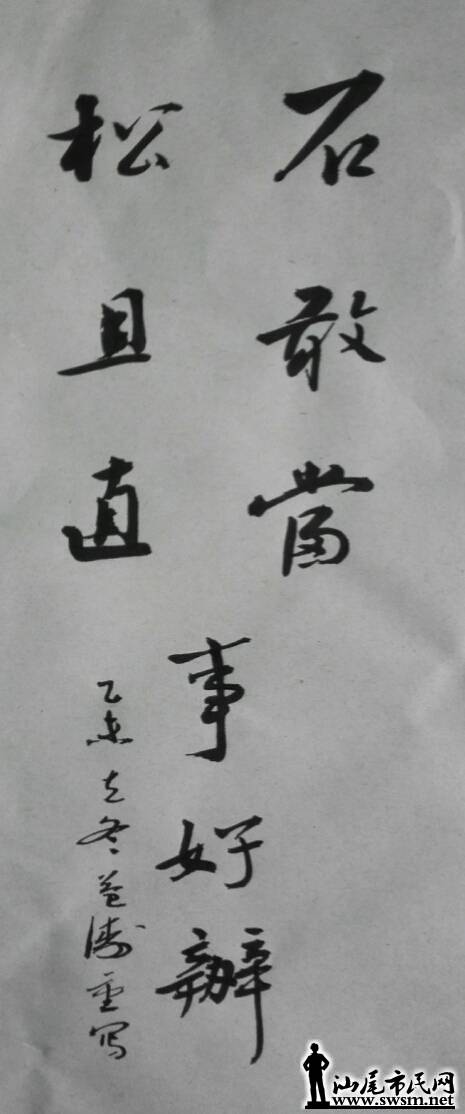 石敢當
松且直
事好辦
乙未立冬益
重写
汕尾市民网
www.swsm.net